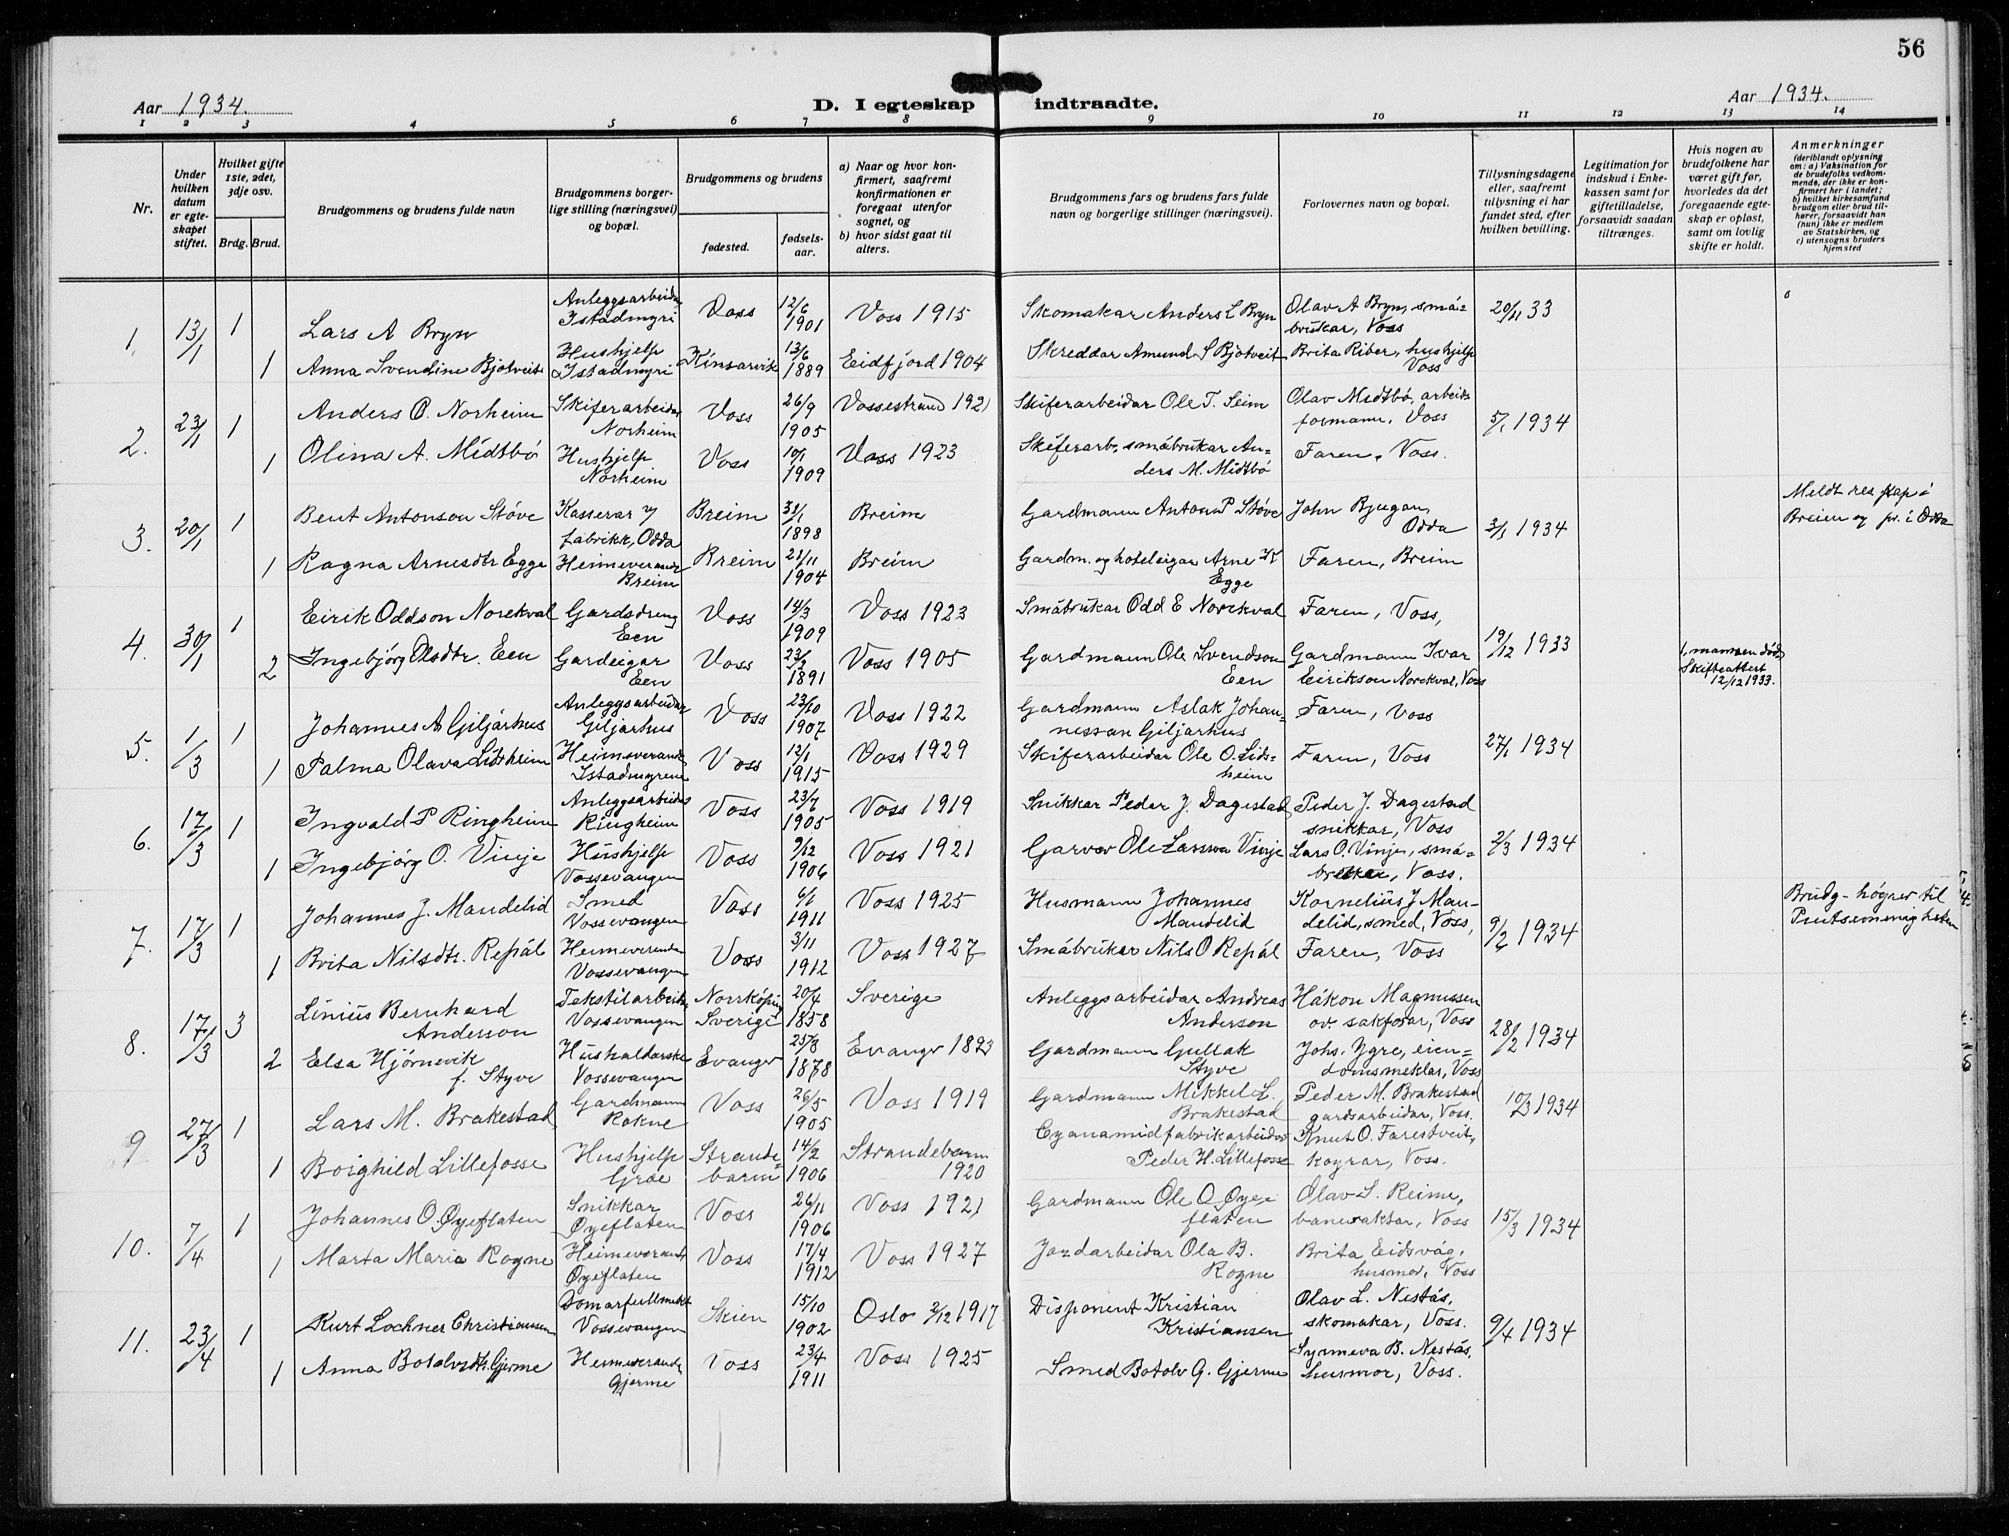 56
Aar 1934.
D. I egteskap indtraadte.
Aar 1934.
1 2 3 4 5 6 7 8 9 10 11 12 13 14
Nr.
Under hvilken datum er egteskapet stiftet.
Hvilket gifte 1ste, 2det, 3dje osv.
Brdg. Brud.
Brudgommens og brudens fulde navn
Brudgommens borgerlige stilling (næringsvei) og bopæl.
Brudgommens og brudens
fødested.
fødselsaar.
a) Naar og hvor konfirmert, saafremt konfirmationen er foregaat utenfor sognet, og
b) hvor sidst gaat til alters.
Brudgommens fars og brudens fars fulde navn og borgerlige stillinger (næringsvei).
Forlovernes navn og bopæl.
Tillysningsdagene eller, saafremt tillysning ei har fundet sted, efter hvilken bevilling.
Legitimation for indskud i Enkekassen samt for giftetilladelse, forsaavidt saadan tiltrænges.
Hvis nogen av brudefolkene har været gift før, hvorledes da det foregaaende egteskap er opløst, samt om lovlig skifte er holdt.
Anmerkninger
(deriblandt oplysning om: a) Vaksination for de brudefolks vedkommende, der ikke er konfirmert her i landet; b) hvilket kirkesamfund brudgom eller brud tilhører, forsaavidt han (hun) ikke er medlem av Statskirken, og c) utensogns bruders hjemsted
1. 13/1 1 Lars A Bryn Anleggsarbeidar Istadmyri Voss 12/6 1901 Voss 1915 Skomakar Anders L Bryn Olav A Bryn, småbrukar, Voss 20/11 33
1 Anna Svendine Bjotveit Hushjelp Istadmyri Kinsarvik 13/6 1889 Eidfjord 1904 Skreddar Amund S Bjotveit Brita Riber, hushjelp Voss
2. 23/1 1 Anders O. Norheim Skiferarbeidar Norheim Voss 26/9 1905 Vossestrand 1921 Skiferarbeidar Ole T. Seim Olav Midtbø, arbeidsformann, Voss 5/1 1934
1 Olina A. Midtbø Hushjelp Norheim Voss 10/1 1909 Voss 1923 Skiferarb. småbrukar Anders M. Midtbø Faren, Voss.
3. 20/1 1 Bent Antonson Støve Kasserar v/ fabrikk, Odda Breim 31/1 1898 Breim Gardmann Anton P Støve John Bjugan, Odda 3/1 1934 Meldt res. kap i Breim og pr. i Odda
1 Ragna Arnesdtr Egge Heimeverande Breim Breim 21/11 1904 Breim Gardm. og hoteleigar Arne K Egge Faren, Breim
4. 30/1 1 Eirik Oddson Norekval Gardsdreng Een Voss 14/3 1909 Voss 1923 Småbrukar Odd E Norekval Faren, Voss, 19/12 1933
2 Ingebjørg Olsdtr. Een Gardeigar Een Voss 23/2 1891 Voss 1905 Gardmann Ole Svendson Een Gardmann Ivar Eirikson Norekval, Voss 1, mannen død, Skifteattest 12/12 1933.
5. 1/3 1 Johannes A Giljarhus Anleggsarbeidar Giljarhus Voss 23/10 1907 Voss 1922 Gardmann Aslak Johannesson Giljarhus Faren, Voss 27/1 1934
1 Palma Olava Lidsheim Heimeverande Istadmyrene Voss 12/1 1915 Voss 1929 Skiferarbeidar Ole O. Lidsheim Faren, Voss
6. 17/3 1 Ingvald P Ringheim Anleggsarbeidar Ringheim Voss 23/7 1905 Voss 1919 Snikkar Peder J. Dagestad Peder J. Dagestad snikkar, Voss 2/3 1934
1 Ingebjørg O. Vinje Hushjelp Vossevangen Voss 9/12 1906 Voss 1921 Garvar Ole Larsson Vinje Lars O. Vinje, småbrukar, Voss.
7. 17/3 1 Johannes J. Mandelid Smed Vossevangen Voss 6/1 1911 Voss 1925 Husmann Johannes Mandelid Kornelius J Mandelid, smed, Voss, 9/2 1934 Brudg. høyrer til Pinsemenigheten
1 Brita Nilsdtr. Repål Heimeverande Vossevangen Voss 3/11 1912 Voss 1927 Småbrukar Nils O Repål Faren, Voss
8. 17/3 3 Linius Bernhard Anderson Tekstilarbeidar Vossevangen Norrköping Sverige 20/4 1858 Sverige Anleggsarbeidar Andreas Anderson Håkon Magnussen ov. sakførar, Voss 28/2 1934
2 Elsa Hjørnevik f. Styve Hushaldarske Vossevangen Evanger 25/8 1878 Evanger 1893 Gardmann Gullak Styve Johs. Ygre, eiendomsmeklar, Voss
9 27/3 1 Lars M. Brakestad Gardmann Rokne Voss 26/5 1905 Voss 1919 Gardmann Mikkel L. Brakestad Peder M. Brakestad gardsarbeidar, Voss. 10/3 1934
1 Borghild Lillefosse Hushjelp Groe Strandebarm 14/2 1906 Strandebarm 1920 Cyanamidfabrikarbeidar Peder H. Lillefosse Knut O. Farestveit, Voss.
10. 7/4 1 Johannes O. Øyeflaten Snikkar Øyeflaten Voss 26/11 1906 Voss 1921 Gardmann Ole O Øyeflaten Olav S. Reime, banevaktar, Voss 15/3 1934
1 Marta Maria Rogne Heimeverande Øyeflaten Voss 17/4 1912 Voss 1927 Jordarbeidar Ola B. Rogne Brita Eidsvåg, husmor, Voss
11. 23/4 1 Kurt Lochner Christiansen Domarfullmekt Vossevangen Skien 15/10 1902 Oslo 2/12 1917 Disponent Kristian Kristiansen Olav L. Nestås, skomakar, Voss. 9/4 1934
1 Anna Botolvsdtr. Gjerme Heimeverande Gjerme Voss 23/4 1911 Voss 1925 Smed Botolv G. Gjerme Synneva B. Nestås, husmor, Voss.